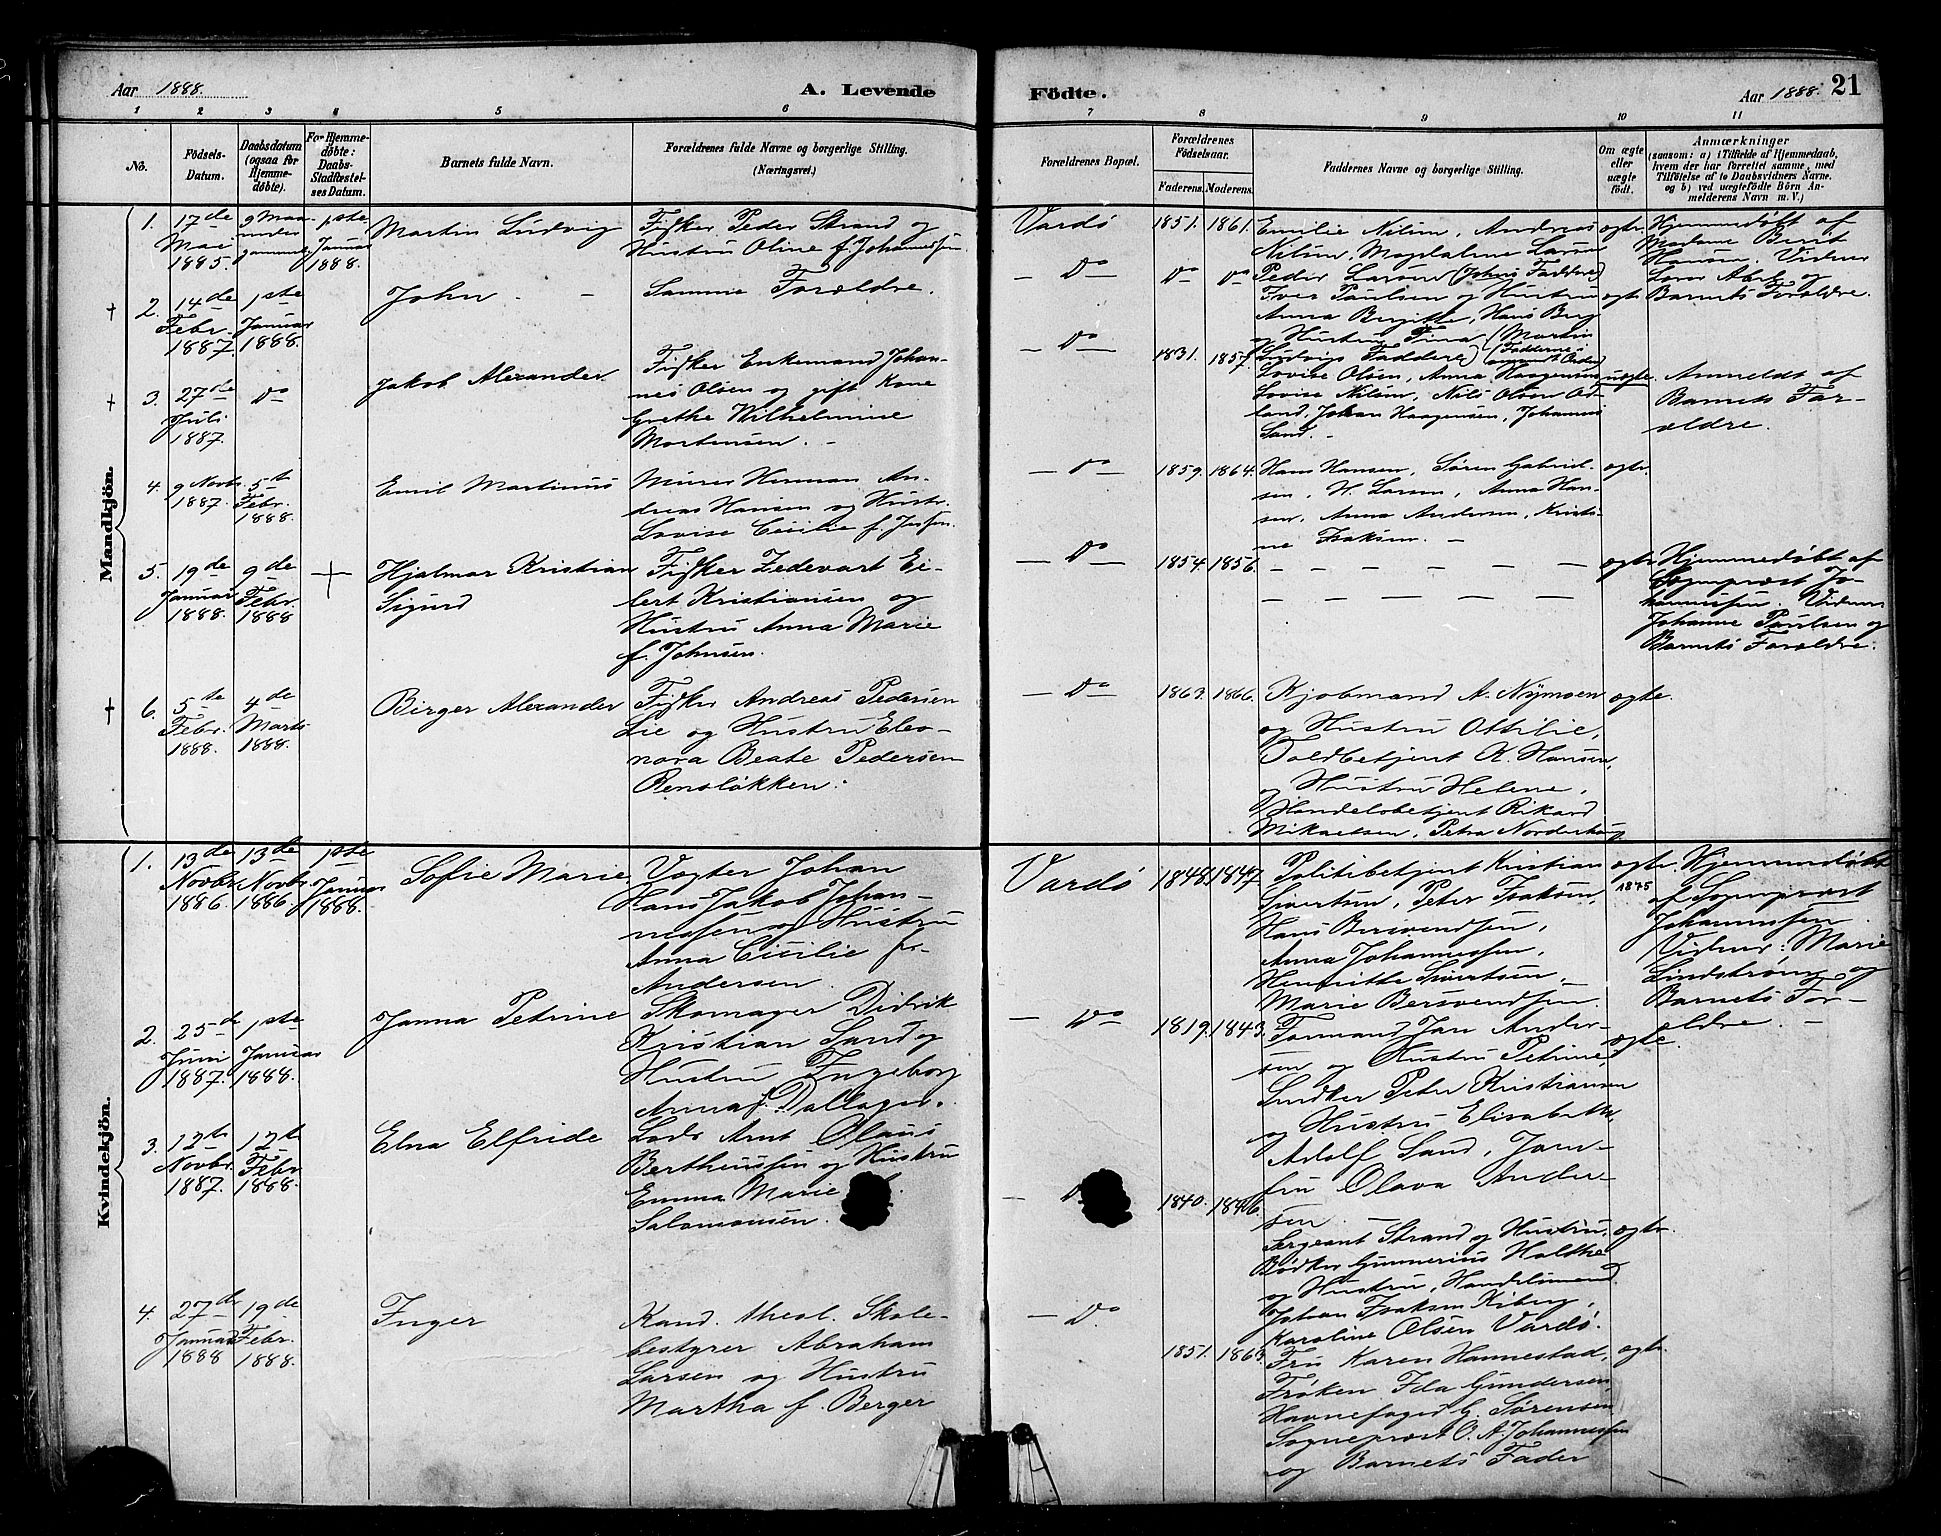 Aar 1888. A. Levende
Födte. Aar 1888. 21
1 2 3 4 5 6
7 8 9 10 11
No.
Födsels-
Datum.
Daabsdatum
(ogsaa for
Hjemme-
døbte).
For Hjemme-
døbte:
Daabs-
Stadfæstel-
ses Datum.
Barnets fulde Navn.
Forældrenes fulde Navne og borgerlige Stilling.
(Næringsvei.)
Forældrenes Bopæl.
Forældrenes
Födselsaar.
Faderens. Moderens.
Faddernes Navne og borgerlige Stilling.
Om ægte
eller
uægte
født.
Anmærkninger
(saasom: a) i Tilfælde af Hjemmedaab,
hvem der har forrettet samme, med
Tilföielse af to Daabsvidners Navne,
og b) ved uægtefödte Börn An-
melderens Navn m. V.)
Mandkjön.
1.
17de
Mai
1885.
1ste
Januar
1888.
Martin Ludvig
Fisker Peder Strand og
Hustru Oline f. Johannessen
Vardø
1851. 1861.
Emilie Nilsen, Andreas
Nilsen, Magdalene Larsen
Peder Larsen (Johns Faddere)
ægte.
Hjemmedøbt af
Madame Berit
Hansen. Vidner
Barnets Forældre.
† 2.
14de
Febr.
1887.
1ste
Januar
1888.
John - -
Samme Forældre.
— Do —
Do Do
Iver Paulsen og Hustru
Anna Birgitte, Hans Berg
og Hustru Trina (Martin
Ludvigs Faddere)
ægte
† 3.
27de
Juli
1887.
Do
Jakob Alexander
Fisker Enkemand Johan-
nes Olsen og gift Kone
Grethe Wilhelmine
Mortensen. -
— Do —
1831. 1857.
Lovise Olsen, Anna Haagensen
Lovise Nilsen, Nils Olsen Od-
land, Johan Haagensen, Johannes
Sand. -
uægte.
Anmeldt af
Barnets For-
ældre.
4.
9 Novbr
1887.
5te
Febr.
1888.
Emil Martinus
Murer Herman An-
dreas Hansen og Hustr.
Lovise Cecilie f. Jensen.
— Do —
1859. 1864.
Hans Hansen, Søren Gabriel-
sen, H. Larsen, Anna Han-
sen, Anna Andersen, Kristi-
ne Isaksen. -
ægte.
5.
19de
Januar
1888.
9de
Febr.
1888
Hjalmar Kristian
Sigurd
Fisker Zedevart Ei-
lert Kristiansen og
Hustru Anna Marie
f. Johnsen.
— Do —
1854. 1856.
— — — — — —
— — — — — —
ægte
Hjemmedøbt af
Sognepræst Jo-
hannessen. Vidner
Johanne Paulsen og
Barnets Forældre.
† 6.
5te
Febr.
1888.
4de
Marts
1888.
Birger Alexander
Fisker Andreas Pedersen
Lie og Hustru Eleo-
nora Beate Pedersen
Rensløkken.
— Do —
1863. 1866.
Kjøbmand A. Nymoen
og Hustru Ottilie,
Toldbetjent K. Hansen,
og Hustru Helene,
Handelsbetjent Rikard
Mikaelsen, Petra Norderhaug
ægte.
Kvindekjön.
1.
13de
Novbr
1886.
13de
Novbr.
1886.
1ste
Januar
1888.
Sofie Marie
Vogter Johan
Hans Jakob Johan-
nessen og Hustru
Anna Cicilie f.
Andersen.
Vardø
1848. 1847.
Politibetjent Kristian
Sivertsen, Peter Isaksen,
Hans Bersvendsen,
Anna Johannessen,
Henriette Sivertsen,
Marie Bersvendsen.
ægte.
1875
Hjemmedøbt
af Sognepræst
Johannessen.
Vidner: Marie
Lindstrøm og
Barnets For-
ældre. -
2.
25de
Juni
1887.
1ste
Januar
1888.
Janna Petrine
Skomager Didrik
Kristian Sand og
Hustru Ingeborg
Anna f. Dallager.
— Do —
1819. 1843.
Formand Jan Ander-
sen og Hustru Petrine,
Snedker Peter Kristiansen
og Hustru Elisabeth,
Adolf Sand, Jom-
fru Olava Ander-
sen. -
ægte.
3.
12te
Novbr.
1887.
12te
Febr
1888.
Elna Elfride
Lods Arnt Olaus
Bertheussen og Hustru
Emma Marie
Salomonsen.
— D
1840. 1846.
Sergeant Strand og Hustru,
Bødker Gunnerius Holthe
og Hustru, Handelsmand
Johan Isaksen Kiberg,
Karoline Olsen Vardø.
ægte.
4.
27de
Januar
1888
19de
Febr.
1888.
Inger
Kand. theol. Skole-
bestyrer Abraham
Larsen og Hustru
Martha f. Berger
— Do.
1851. 1863.
Fru Karen Hannestad,
Frøken Ida Gundersen,
Havnefoged G. Sørensen,
Sognepræst O. A. Johannessen
og Barnets Fader
ægte.